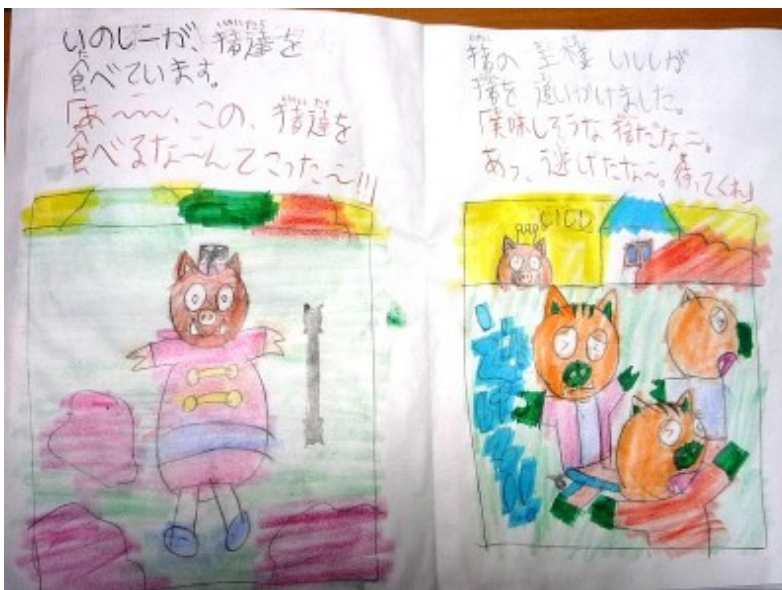 いのしニが、猪達を
食べています。
「あ〜〜、この、猪達を
食べるな〜んてこった〜!!!
猪の いししが
猪を追いかけました。
「美味しそうな猪だな〜。
あっ、逃げたな〜。待ってくれ」